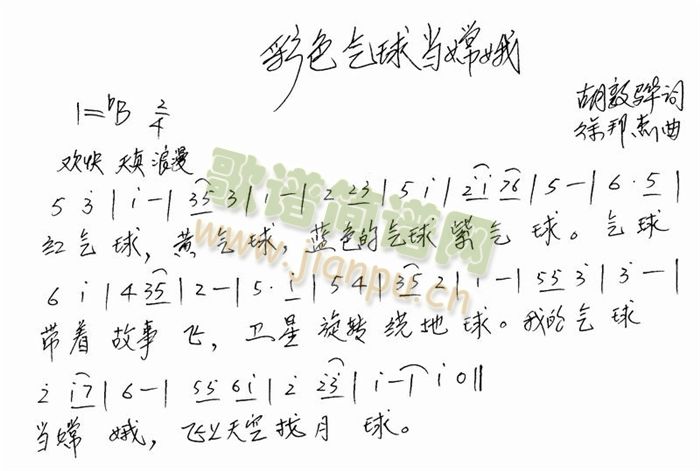 彩色气球当嫦娥
1=ᵇB 2/4
胡敦骅词
徐邦杰曲
欢快 天真 浪漫
5 3̇ | i - | 3̇5̇ 3̇ | i - | 2̇ 2̇3̇ | 5 i | 2̇i 7̇6̇ | 5 - | 6 · 5 |
红气球,黄气球,蓝色的气球紫气球。气球
6 i | 4 35 | 2 - | 5 · i | 5 4 | 35 2 | i - | 55 3̇ | 3̇ - |
带着故事飞,卫星旋转绕地球。我的气球
2̇ i7 | 6 - | 55 6i | 2̇ 2̇3̇ | i - | i 0 ||
当嫦娥,飞上天空找月球。
歌谱简谱网
www.jianpu.cn